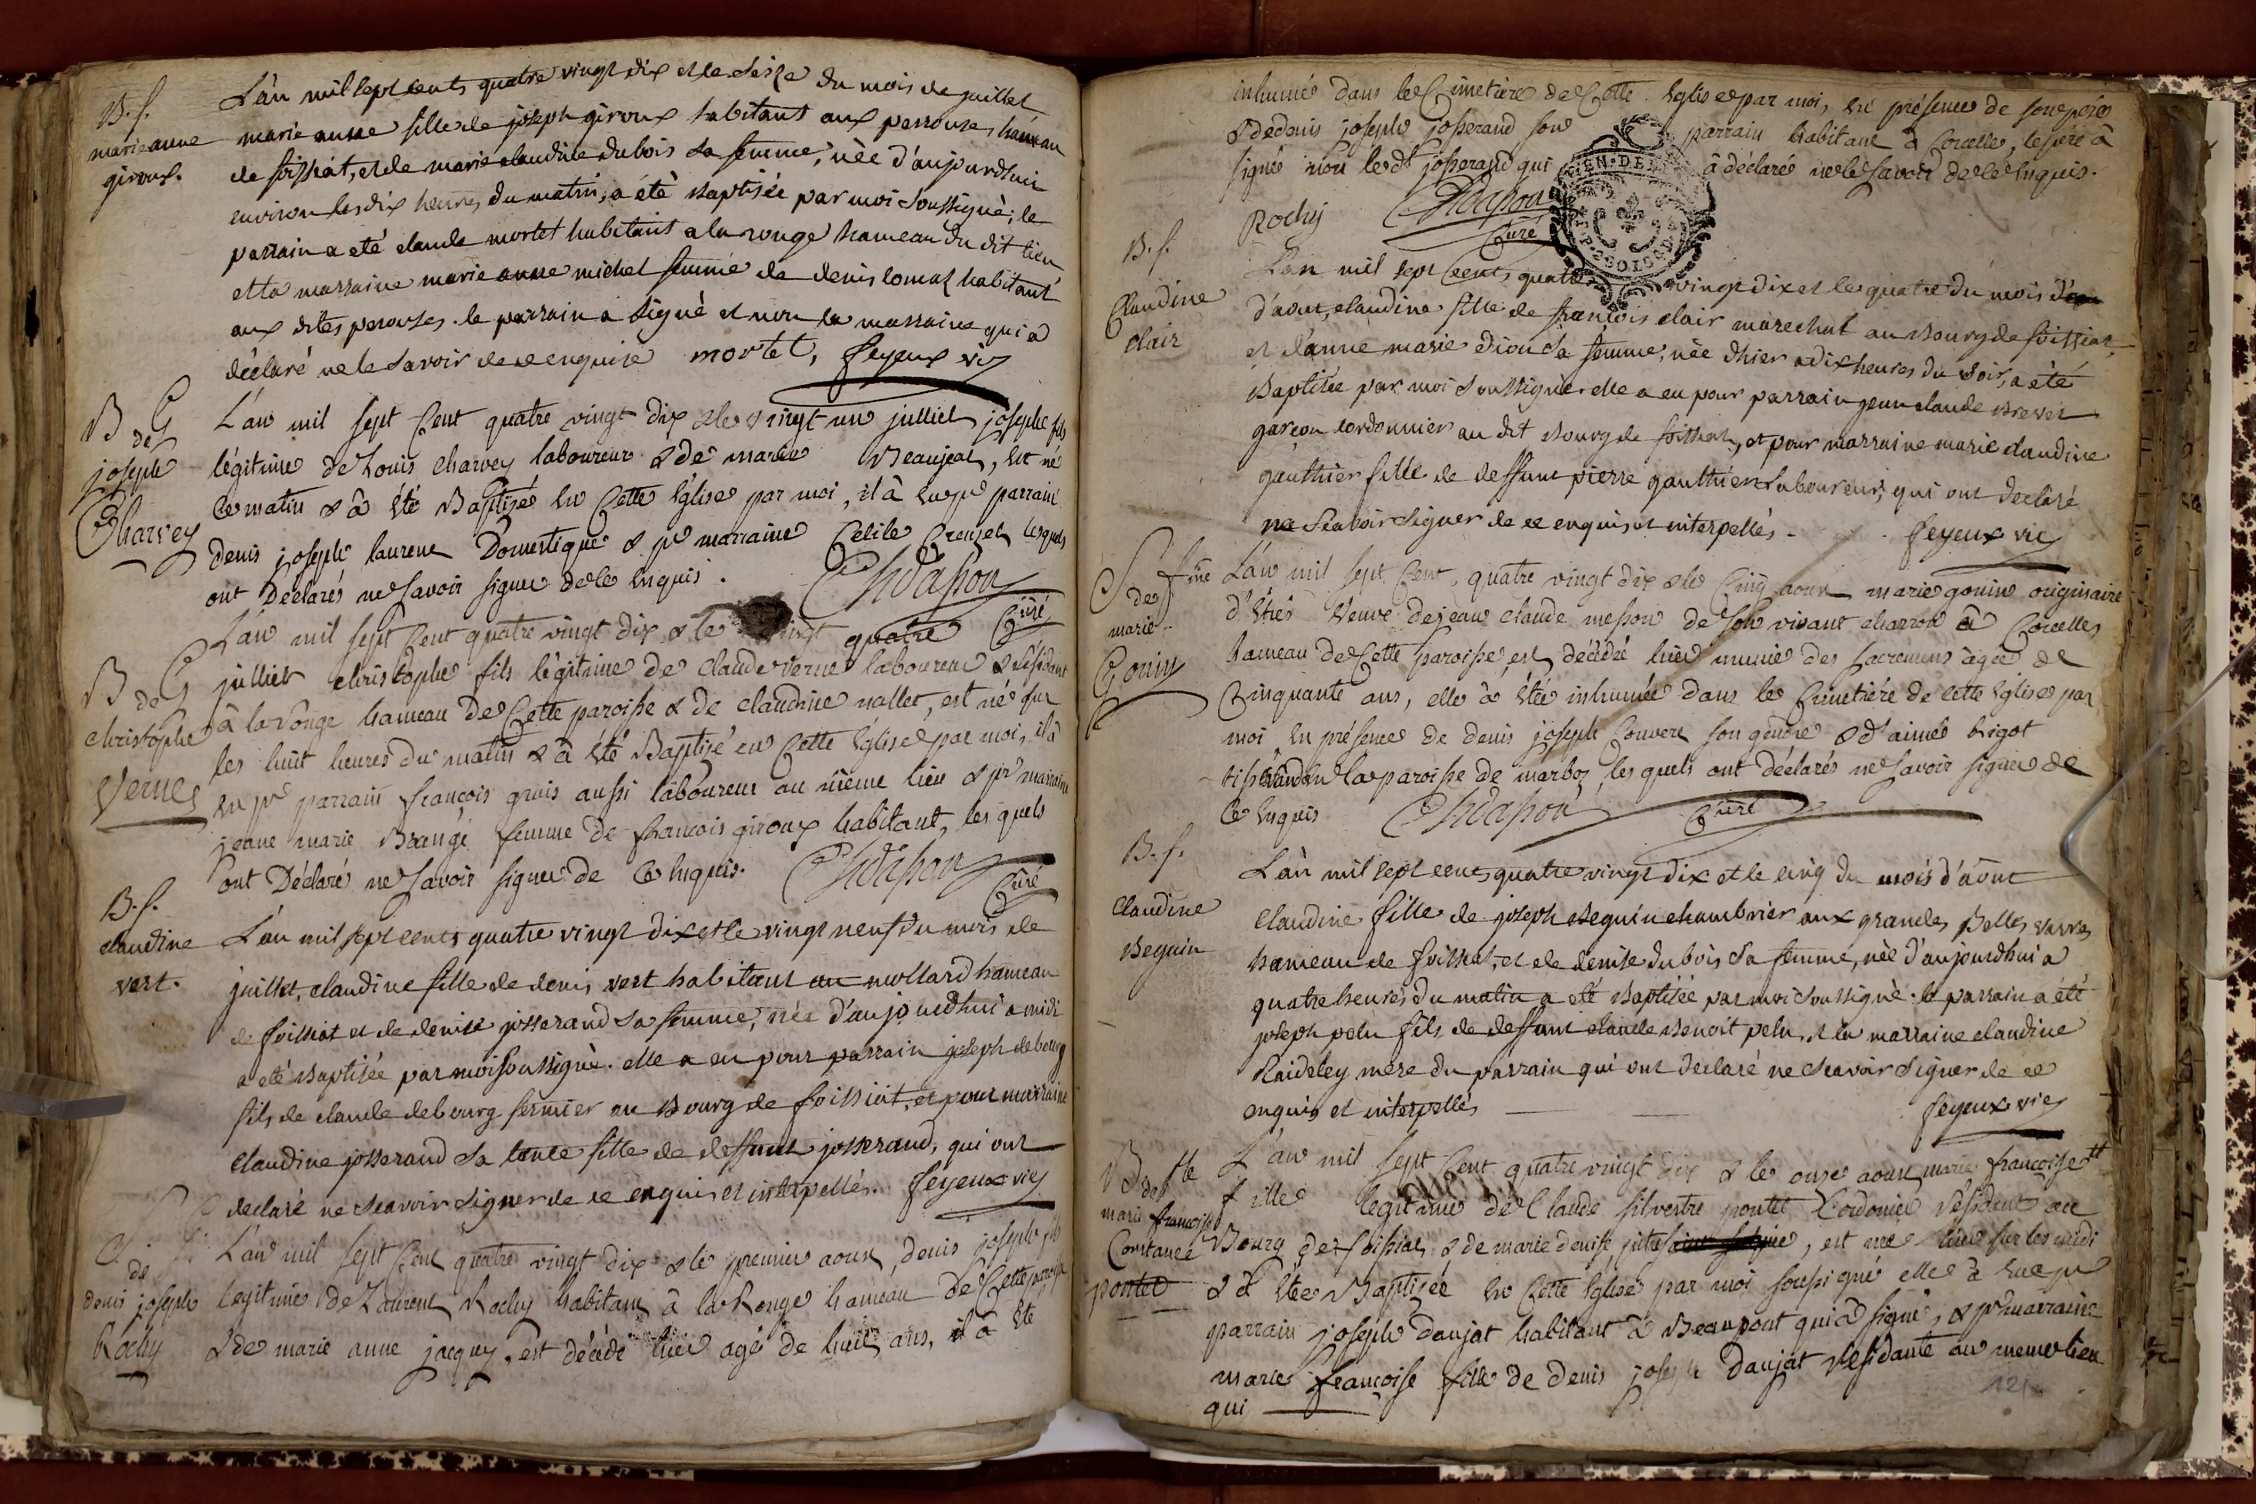 B. f.
marie anne
giroux.
L'an mil sept cents quatre vingt dix et le seize du mois de juillet
marie anne fille de joseph giroux habitant aux perrouses, hameau
de foissiat, et de marie claudine dubois sa femme, née d'aujourdhui
environ les dix heures du matin, a été baptisée par moi soussigné; le
parrain a été claude mortet habitant a la ronge hameau du dit lieu
et la marraine marie anne michel femme de denis lomat habitant
aux dites perouses. le parrain a signé et non la marraine qui a
déclaré ne le savoir de ce enquise mortet, feyeux vic
B G
de
joseph
Charvey
L'an mil sept Cent quatre vingt dix & le vingt un julliet joseph fils
légitime de Louis Charvey laboureur & de marie Beaujeat, est né
ce matin & à été Baptizé en Cette Eglise par moi, il à eu pr parrain
denis joseph laurent Domestique & pr marraine Cecile Creuzet lesquels
ont Déclarés ne savoir signer de ce Enquis. Chdasson
Curé
B G
de
christophe
Vernes
L'an mil sept Cent quatre vingt dix & le vingt quatre
julliet christophe fils légitime de claude verne laboureur & résidant
à la ronge hameau de Cette paroisse & de claudine nallet, est né sur
les huit heures du matin & à été Baptizé en Cette Eglise par moi, il à
eu pr parrain françois grois aussi laboureur au même lieu & pr marraine
jeane marie Brangé femme de francois giroux habitant, les quels
ont Déclaré ne savoir signer de Ce Enquis. Chdasson
Curé
B. f.
claudine
vert.
L'an mil sept cents quatre vingt dix et le vingt neuf du mois de
juillet, claudine fille de denis vert habitant au mollard hameau
de foissiat et de denise josserand sa femme, née d'aujourdhui a midi
a été baptisée par moi soussigné. elle a eu pour parrain joseph debourg
fils de claude debourg fermier au bourg de foissiat, et pour marraine
claudine josserand sa tante fille de deffunt josserand, qui ont
declaré ne scavoir signer de ce enquis et interpellés. feyeux vic
de
denis joseph
Rochy
L'an mil sept Cent quatre vingt dix & le premier aoust, denis joseph fils
legitime de Laurent Rochy habitant à la Ronge hameau de Cette paroisse
& de marie anne jacquy, est décédé hier agé de huit ans, il à été
inhumé dans le Cimetière de Cette Eglise par moi, en présence de son père
& de denis joseph josserand son parrain habitant à Corcelle, le père à
signé non le dt josserand qui à déclaré ne le savoir de ce Enquis.
Rochy Chdasson
Curé
B. f.
Claudine
clair
L'an mil sept cents quatre vingt dix et le quatre du mois
d'aout, claudine fille de francois clair marechal au bourg de foissiat
et d'anne marie dion sa femme, née d'hier a dix heures du soir, a été
baptisée par moi soussigné. elle a eu pour parrain jean claude brevet
garçon cordonnier au dit bourg de foissiat, et pour marraine marie claudine
gauthier fille de deffunt pierre gauthier laboureur, qui ont declaré
ne scavoir signer de ce enquis et interpellés. feyeux vic
S fme
de
marie
Gouin
L'an mil sept Cent, quatre vingt dix & le Cinq aoust marie gouin originaire
d'Etrés veuve de jean claude messon de son vivant charron à Corcelles
hameau de Cette paroisse, est décédé hier munie des sacremens agée de
Cinquante ans, elle à été inhumée dans le Cimetière de cette Eglise par
moi en présence de denis joseph Convert son gendre & d'aimé bigot
tisserand en la paroisse de marboz, les quels ont déclarés ne savoir signer de
Ce Enquis Chdasson Curé
B. f.
claudine
Beguin
L'an mil sept cents quatre vingt dix et le cinq du mois d'aout
claudine fille de joseph beguin chambrier aux grandes Belles varres
hameau de foissiat, et de denise dubois sa femme, née d'aujourdhui a
quatre heures du matin a été baptisée par moi soussigné. le parrain a été
joseph pelu fils de deffunt claude benoit pelu, et la marraine claudine
Raideley mere du parrain qui ont declaré ne scavoir signer de ce
enquis et interpellés feyeux vic
B flle
de
marie françoise
Constance
pontet
L'an mil sept Cent quatre vingt dix & le onze aoust marie françoise
fille legitime de Claude silvestre pontet Cordonier résident au
Bourg de foissiat & de marie denise, est née hier sur les midi
& à été Baptizée en Cette Eglise par moi soussigné elle à eu pr
parrain joseph daujat habitant à Beaupont qui à signé, & pr marraine
marie françoise fille de denis joseph Daujat résidante au meme lieu
qui
121